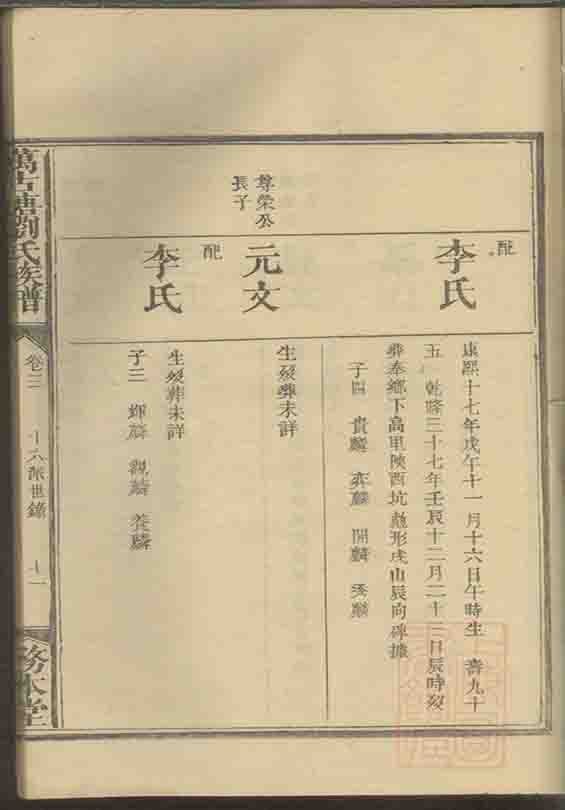 配
李氏
康熙十七年戊午十一月十六日午時生 壽九十
五 乾隆三十七年壬辰十二月二十三日辰時歿
葬奉鄉下高里陝西坑 形戌山辰向碑據
子四 貴麟 奕麟 開麟 秀麟
尊榮公
長子
元文
生歿葬未詳
配
李氏
生歿葬未詳
子三 輝麟 觀麟 養麟
萬古塘劉氏族譜
卷三 十六派世錄 十一
務本堂